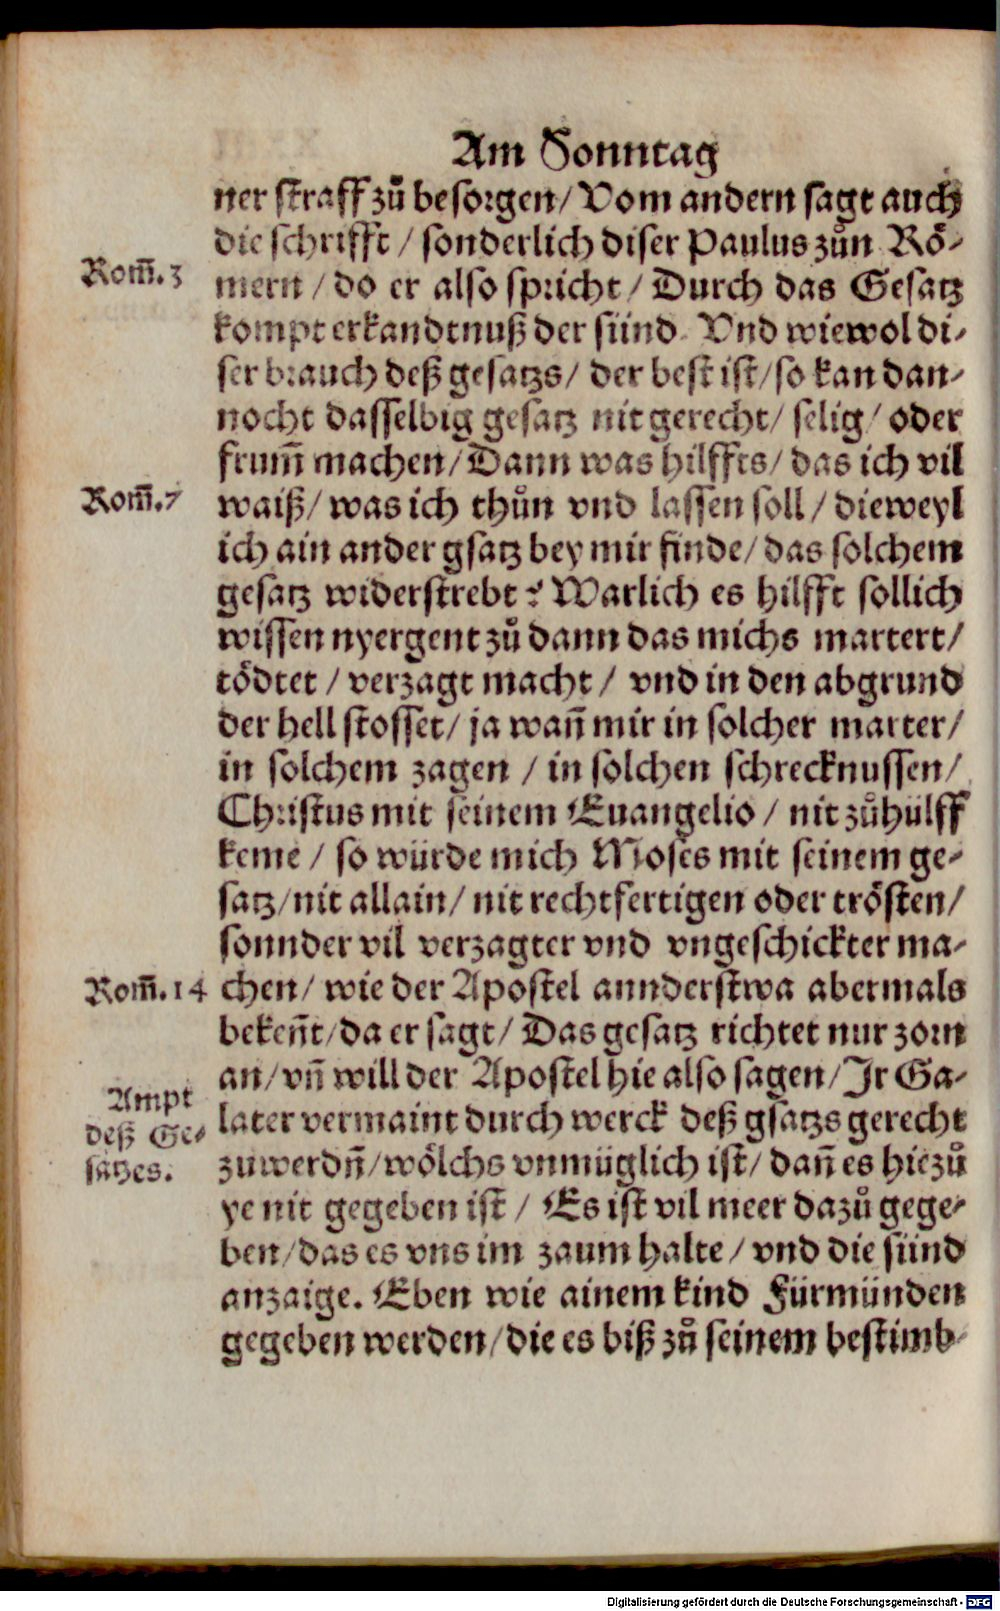 Am Sonntag
ner straff zů besorgen/ Vom andern sagt auch
die schrifft / sonderlich diser Paulus zůn Rö-
Rom̃. 3
mern / do er also spricht / Durch das Gesatz
kompt erkandtnuß der sünd. Vnd wiewol di-
ser brauch deß gesatzs/ der best ist/ so kan dan-
nocht dasselbig gesatz nit gerecht/ selig/ oder
frum̃ machen/ Dann was hilffts/ das ich vil
Rom̃. 7
waiß/ was ich thůn vnd lassen soll / dieweyl
ich ain ander gsatz bey mir finde/ das solchem
gesatz widerstrebt? Warlich es hilfft sollich
wissen nyergent zů dann das michs martert/
tödtet / verzagt macht / vnd in den abgrund
der hell stosset/ ja wañ mir in solcher marter/
in solchem zagen / in solchen schrecknussen/
Christus mit seinem Euangelio / nit zůhülff
keme / so würde mich Moses mit seinem ge-
satz/ nit allain/ nit rechtfertigen oder trösten/
sonnder vil verzagter vnd vngeschickter ma-
Rom̃. 14
chen/ wie der Apostel annderstwa abermals
bekeñt/ da er sagt/ Das gesatz richtet nur zorn
an/ vñ will der Apostel hie also sagen/ Jr Ga-
Ampt
deß Ge-
satzes.
later vermaint durch werck deß gsatzs gerecht
zuwerdñ/ wölchs vnmüglich ist/ dañ es hiezů
ye nit gegeben ist / Es ist vil meer dazů gege-
ben/ das es vns im zaum halte / vnd die sünd
anzaige. Eben wie ainem kind Fürmünden
gegeben werden/ die es biß zů seinem bestimb-
Digitalisierung gefördert durch die Deutsche Forschungsgemeinschaft - DFG